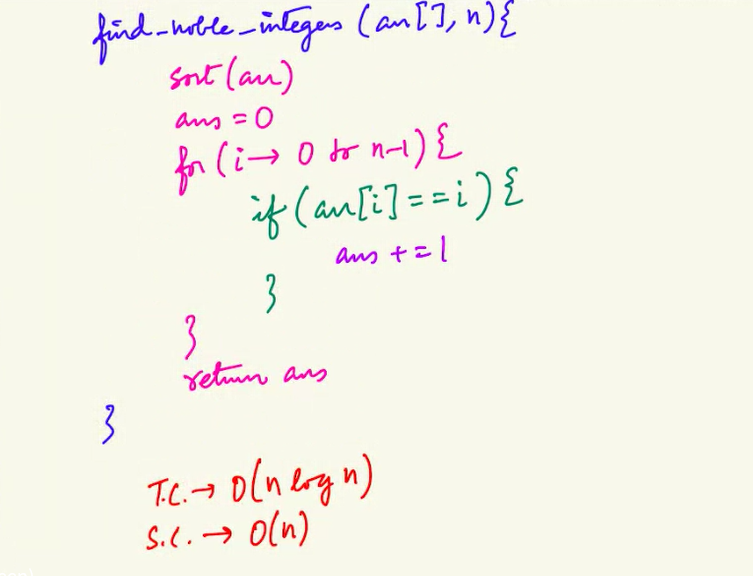 find_noble_integers (arr[], n){
sort (arr)
ans = 0
for (i→ 0 to n-1) {
if (arr[i] == i) {
ans += 1
}
}
return ans
}
T.C. → O(n log n)
S.C. → O(n)